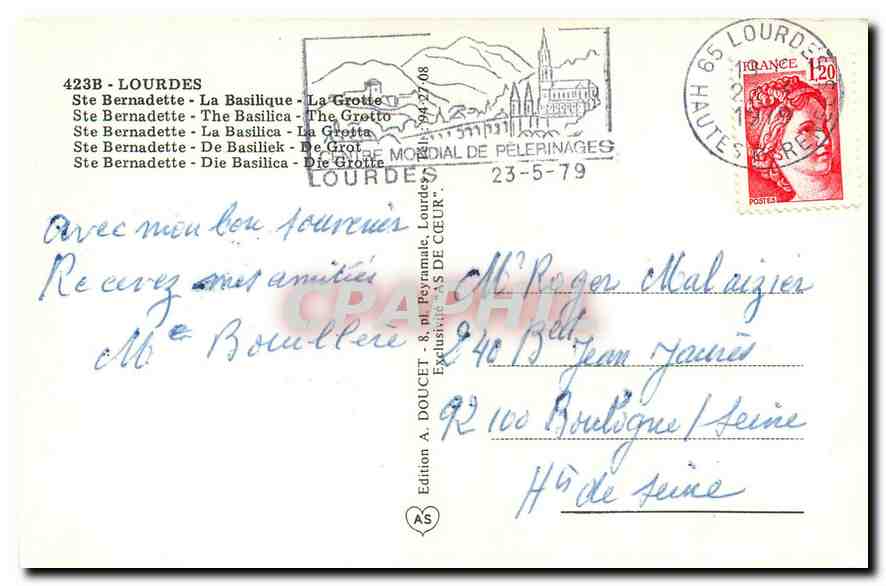 423B - LOURDES
Ste Bernadette - La Basilique - La Grotte
Ste Bernadette - The Basilica - The Grotto
Ste Bernadette - La Basilica - La Grotta
Ste Bernadette - De Basiliek - De Grot
Ste Bernadette - Die Basilica - Die Grotte
CENTRE MONDIAL DE PÈLERINAGES
LOURDES 23-5-79
65 LOURDES
HAUTES PYRENEES
FRANCE 1,20
POSTES
avec mon bon souvenir
Recevez mes amitiés
Me Bouillère
Edition A. DOUCET - 8, pl. Peyramale, Lourdes, Tél. 94-27-08
Exclusivité "AS DE CŒUR".
AS
Mr Roger Malaizier
240 Bld Jean Jaurès
92100 Boulogne / Seine
Hts de Seine
CPAPHIL